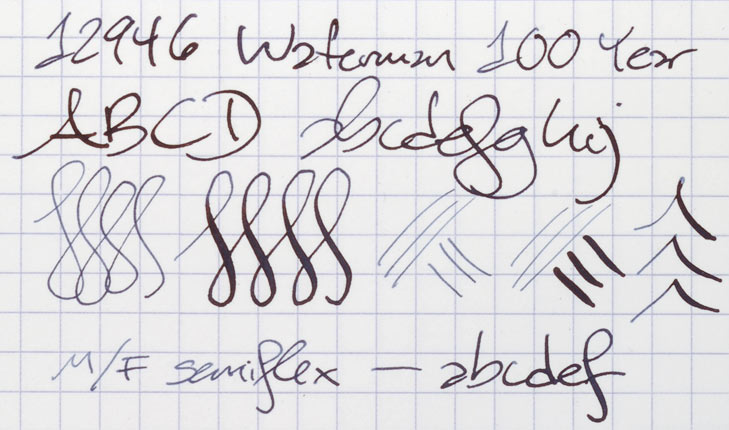 12946 Waterman 100 Year
ABCD abcdefghij
M/F semiflex — abcdef